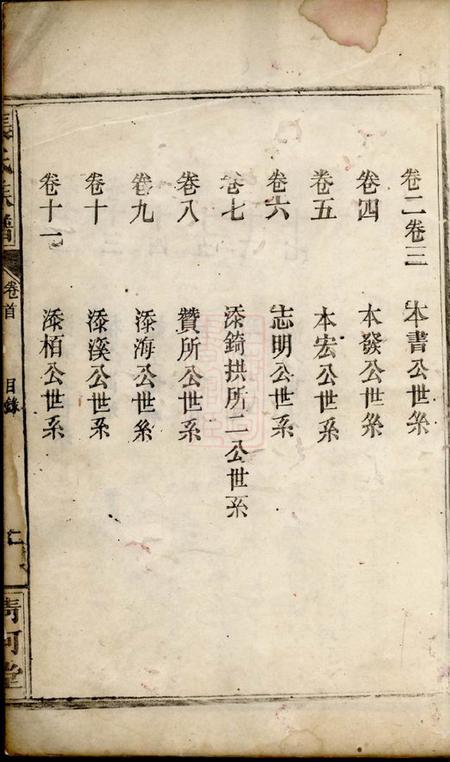 卷二卷三 本書公世系
卷四 本發公世系
卷五 本宏公世系
卷六 志明公世系
卷七 添錡拱所二公世系
卷八 贊所公世系
卷九 添海公世系
卷十 添溪公世系
卷十一 添栢公世系
張氏族譜 卷首 目錄 清河堂